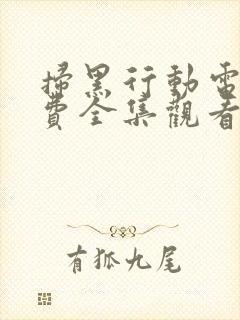 掃黑行動電
費全集觀看
有狐九尾